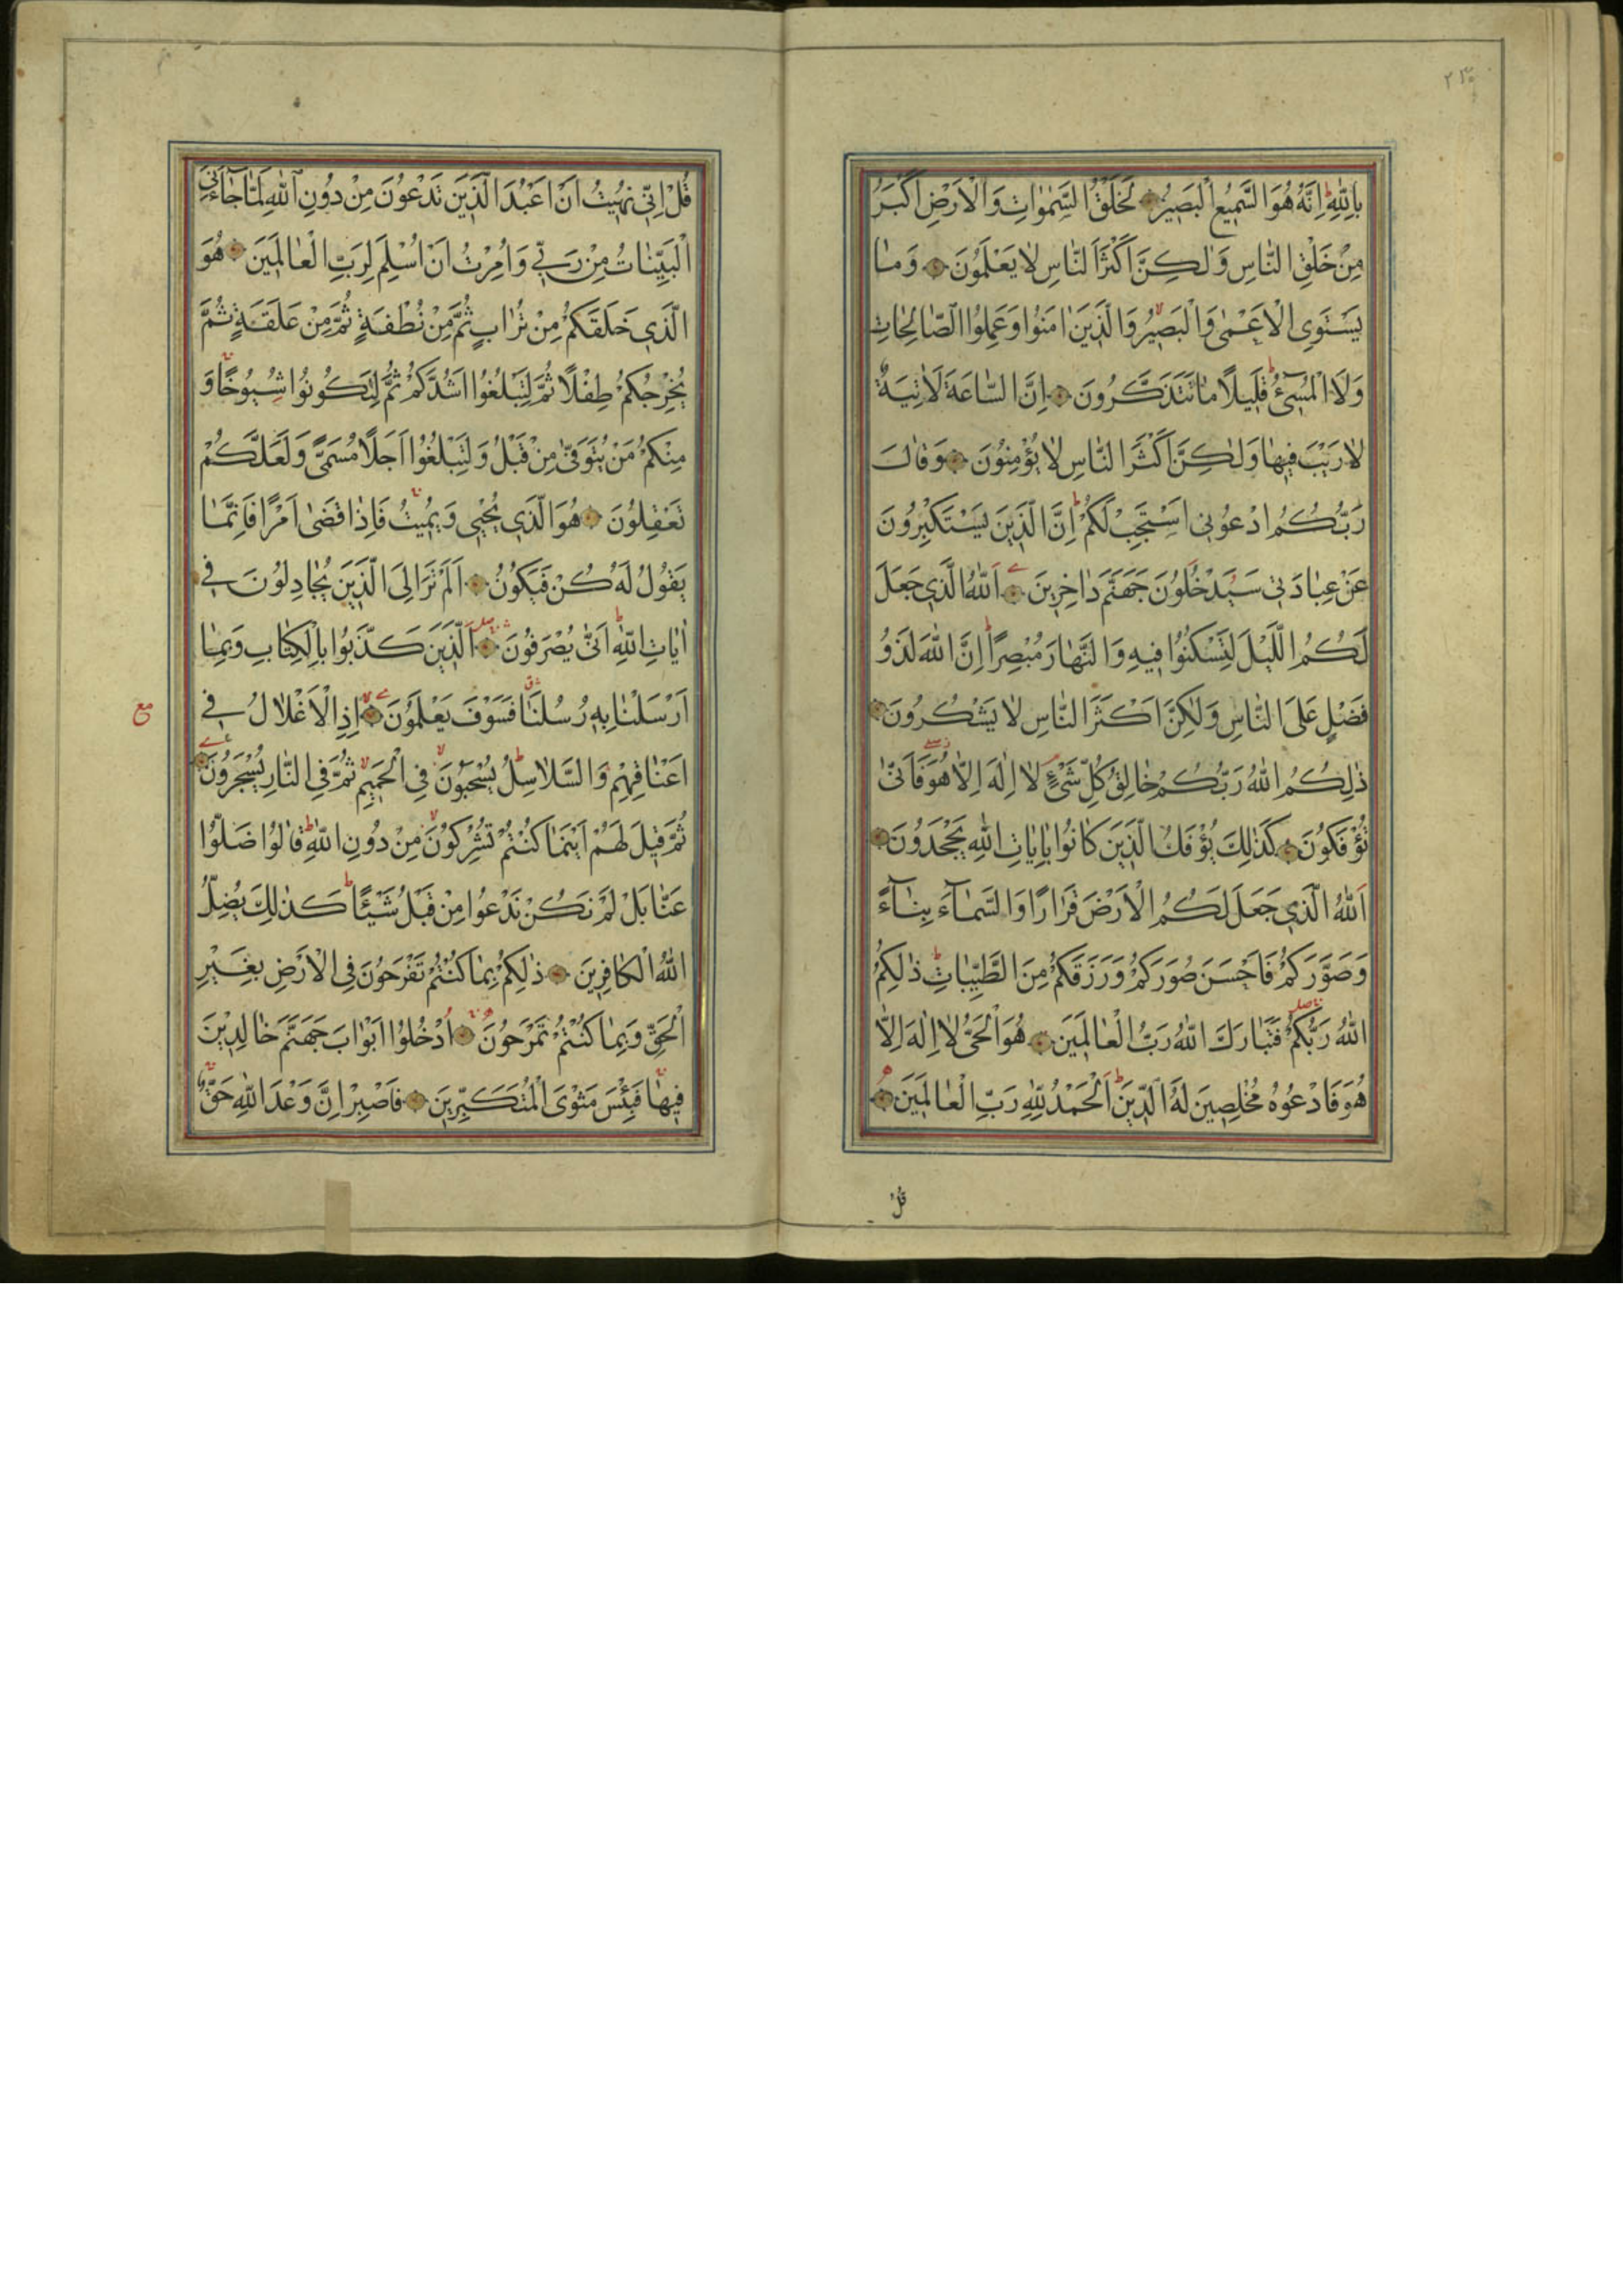 بِاللّٰهِ اِنَّهُ هُوَ السَّمِيعُ الْبَصِيرُ لَخَلْقُ السَّمٰوَاتِ وَالْاَرْضِ اَكْبَرُ
مِنْ خَلْقِ النَّاسِ وَلٰكِنَّ اَكْثَرَ النَّاسِ لَا يَعْلَمُونَ وَمَا
يَسْتَوِى الْاَعْمٰى وَالْبَصِيرُ وَالَّذِينَ اٰمَنُوا وَعَمِلُوا الصَّالِحَاتِ
وَلَا الْمُسِىٓءُ قَلِيلًا مَا تَتَذَكَّرُونَ اِنَّ السَّاعَةَ لَاٰتِيَةٌ
لَا رَيْبَ فِيهَا وَلٰكِنَّ اَكْثَرَ النَّاسِ لَا يُؤْمِنُونَ وَقَالَ
رَبُّكُمُ ادْعُونِى اَسْتَجِبْ لَكُمْ اِنَّ الَّذِينَ يَسْتَكْبِرُونَ
عَنْ عِبَادَتِى سَيَدْخُلُونَ جَهَنَّمَ دَاخِرِينَ اَللّٰهُ الَّذِى جَعَلَ
لَكُمُ اللَّيْلَ لِتَسْكُنُوا فِيهِ وَالنَّهَارَ مُبْصِرًا اِنَّ اللّٰهَ لَذُو
فَضْلٍ عَلَى النَّاسِ وَلٰكِنَّ اَكْثَرَ النَّاسِ لَا يَشْكُرُونَ
ذٰلِكُمُ اللّٰهُ رَبُّكُمْ خَالِقُ كُلِّ شَىْءٍ لَا اِلٰهَ اِلَّا هُوَ فَاَنّٰى
تُؤْفَكُونَ كَذٰلِكَ يُؤْفَكُ الَّذِينَ كَانُوا بِاٰيَاتِ اللّٰهِ يَجْحَدُونَ
اَللّٰهُ الَّذِى جَعَلَ لَكُمُ الْاَرْضَ قَرَارًا وَالسَّمَآءَ بِنَآءً
وَصَوَّرَكُمْ فَاَحْسَنَ صُوَرَكُمْ وَرَزَقَكُمْ مِنَ الطَّيِّبَاتِ ذٰلِكُمُ
اللّٰهُ رَبُّكُمْ فَتَبَارَكَ اللّٰهُ رَبُّ الْعَالَمِينَ هُوَ الْحَىُّ لَا اِلٰهَ اِلَّا
هُوَ فَادْعُوهُ مُخْلِصِينَ لَهُ الدِّينَ اَلْحَمْدُ لِلّٰهِ رَبِّ الْعَالَمِينَ
قُلْ
قُلْ اِنِّى نُهِيتُ اَنْ اَعْبُدَ الَّذِينَ تَدْعُونَ مِنْ دُونِ اللّٰهِ لَمَّا جَآءَنِىَ
الْبَيِّنَاتُ مِنْ رَبِّى وَاُمِرْتُ اَنْ اُسْلِمَ لِرَبِّ الْعَالَمِينَ هُوَ
الَّذِى خَلَقَكُمْ مِنْ تُرَابٍ ثُمَّ مِنْ نُطْفَةٍ ثُمَّ مِنْ عَلَقَةٍ ثُمَّ
يُخْرِجُكُمْ طِفْلًا ثُمَّ لِتَبْلُغُوا اَشُدَّكُمْ ثُمَّ لِتَكُونُوا شُيُوخًا وَ
مِنْكُمْ مَنْ يُتَوَفّٰى مِنْ قَبْلُ وَلِتَبْلُغُوا اَجَلًا مُسَمًّى وَلَعَلَّكُمْ
تَعْقِلُونَ هُوَ الَّذِى يُحْيِى وَيُمِيتُ فَاِذَا قَضٰى اَمْرًا فَاِنَّمَا
يَقُولُ لَهُ كُنْ فَيَكُونُ اَلَمْ تَرَ اِلَى الَّذِينَ يُجَادِلُونَ فِى
اٰيَاتِ اللّٰهِ اَنّٰى يُصْرَفُونَ اَلَّذِينَ كَذَّبُوا بِالْكِتَابِ وَبِمَا
اَرْسَلْنَا بِهِ رُسُلَنَا فَسَوْفَ يَعْلَمُونَ اِذِ الْاَغْلَالُ فِى
مع
اَعْنَاقِهِمْ وَالسَّلَاسِلُ يُسْحَبُونَ فِى الْحَمِيمِ ثُمَّ فِى النَّارِ يُسْجَرُونَ
ثُمَّ قِيلَ لَهُمْ اَيْنَمَا كُنْتُمْ تُشْرِكُونَ مِنْ دُونِ اللّٰهِ قَالُوا ضَلُّوا
عَنَّا بَلْ لَمْ نَكُنْ نَدْعُوا مِنْ قَبْلُ شَيْئًا كَذٰلِكَ يُضِلُّ
اللّٰهُ الْكَافِرِينَ ذٰلِكُمْ بِمَا كُنْتُمْ تَفْرَحُونَ فِى الْاَرْضِ بِغَيْرِ
الْحَقِّ وَبِمَا كُنْتُمْ تَمْرَحُونَ اُدْخُلُوا اَبْوَابَ جَهَنَّمَ خَالِدِينَ
فِيهَا فَبِئْسَ مَثْوَى الْمُتَكَبِّرِينَ فَاصْبِرْ اِنَّ وَعْدَ اللّٰهِ حَقٌّ